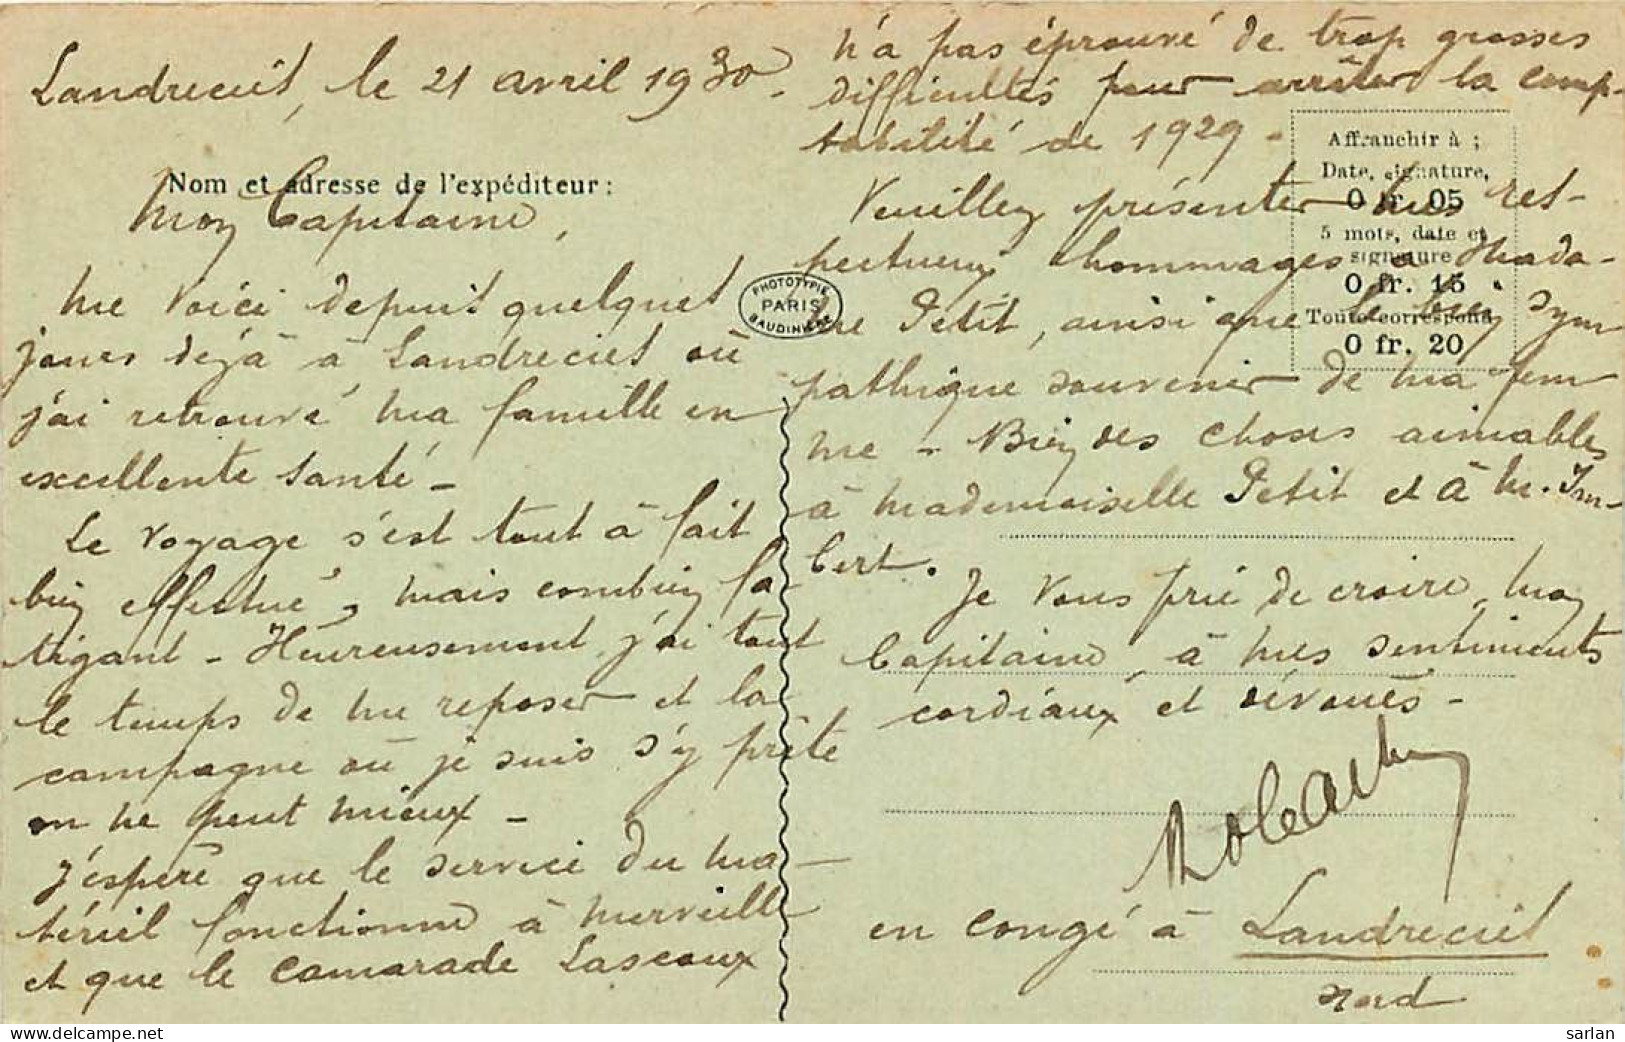 Landrecies, le 21 avril 1930.
Nom et adresse de l'expéditeur :
Mon Capitaine,
Me voici depuis quelques
jours déjà à Landrecies où
j'ai retrouvé ma famille en
excellente santé –
Le voyage s'est tout à fait
bien effectué, mais combien fa-
tigant – Heureusement j'ai tout
le temps de me reposer et la
campagne où je suis s'y prête
on ne peut mieux –
J'espère que le service du ma-
tériel fonctionne à merveille
et que le camarade Lascoux
PHOTOTYPIE
PARIS
BAUDINIÈRE
n'a pas éprouvé de trop grosses
difficultés pour arrêter la comp-
tabilité de 1929 –
Veuillez présenter mes res-
pectueux hommages à Mada-
me Petit, ainsi que le bien sym
pathique souvenir de ma fem
me – Bien des choses aimables
à Mademoiselle Petit et à M. Im-
bert.
Je vous prie de croire, mon
Capitaine, à mes sentiments
cordiaux et dévoués –
en congé à Landrecies
Nord
Affranchir à :
Date, signature,
0 fr. 05
5 mots, date et
signature
0 fr. 15
Toute correspond.
0 fr. 20
sarlan